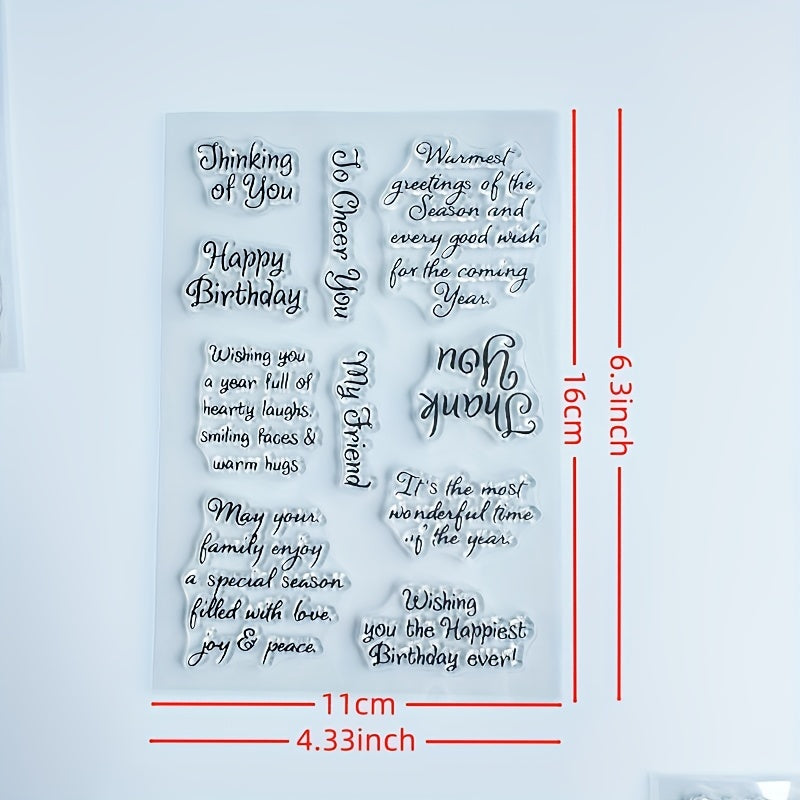 Thinking
of You
To Cheer You
Warmest
greetings of the
Season and
every good wish
for the coming
Year.
Happy
Birthday
Wishing you
a year full of
hearty laughs,
smiling faces &
warm hugs
My Friend
Thank
You
It's the most
wonderful time
of the year.
May your
family enjoy
a special season
filled with love,
joy & peace.
Wishing
you the Happiest
Birthday ever!
16cm
6.3inch
11cm
4.33inch